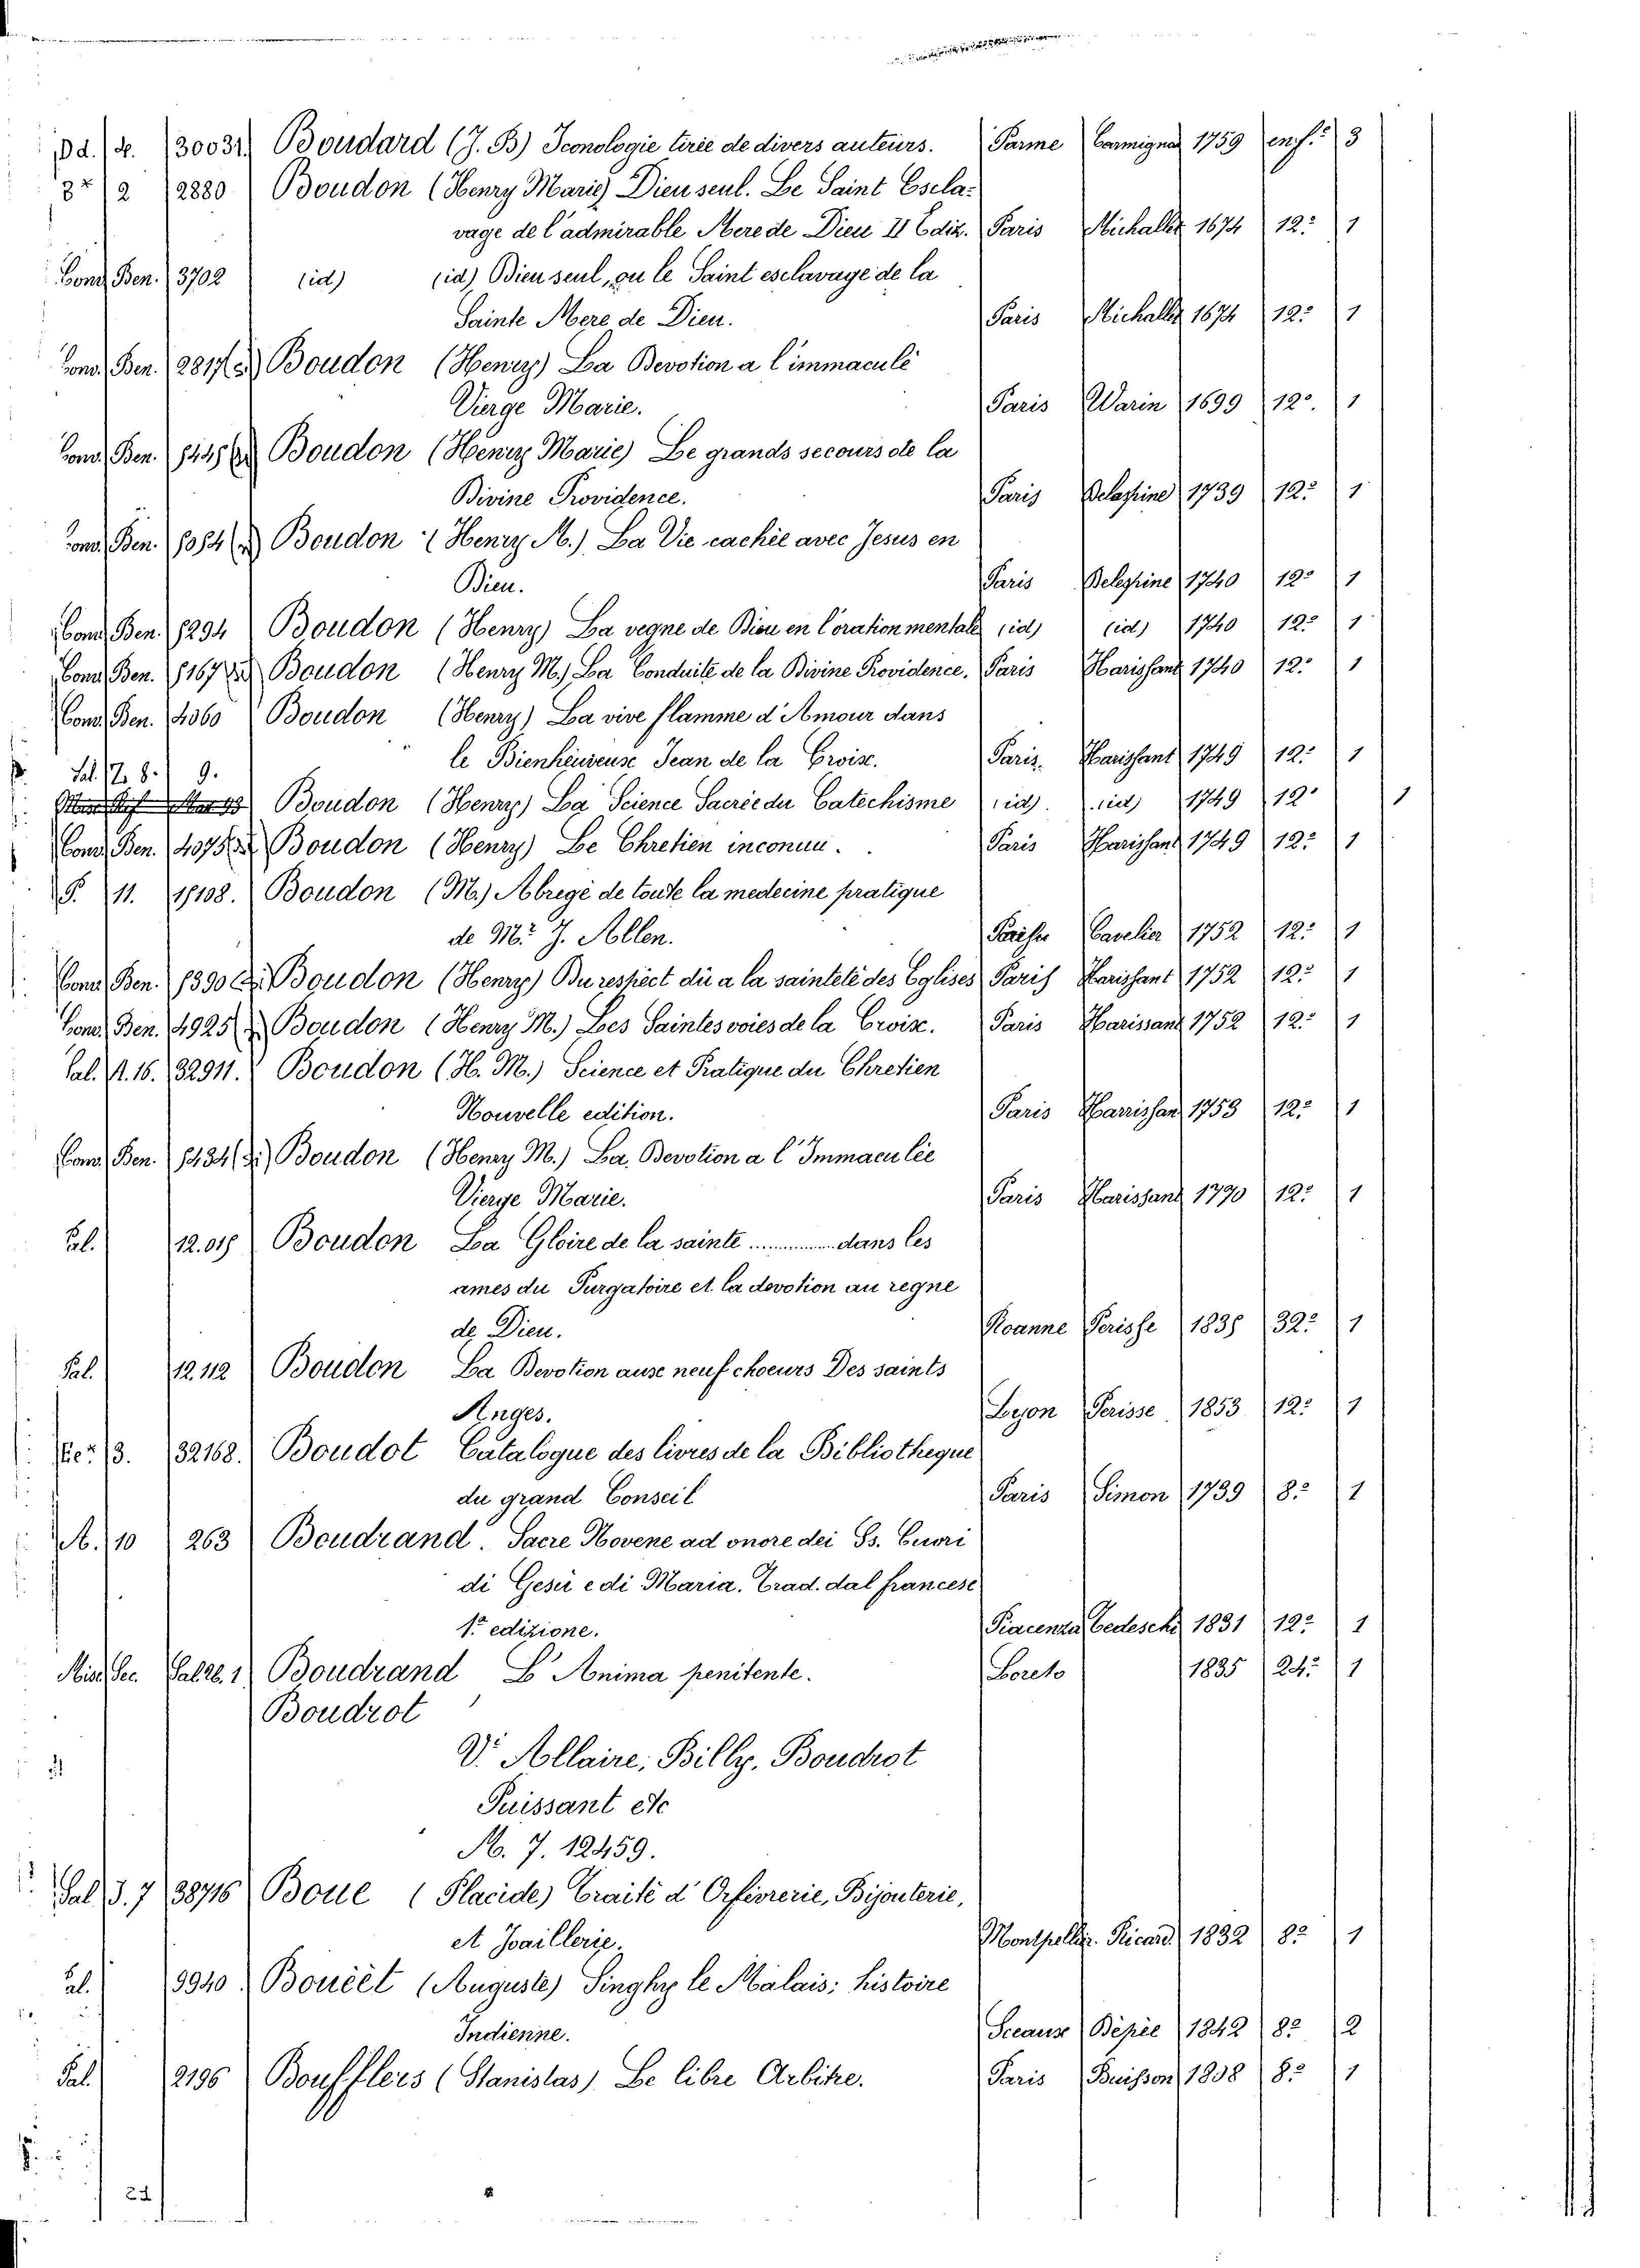 Pd. 4. 30031. Boudard (J. B) Iconologie tirée de divers auteurs. Parme Carmignac 1759 en f.º 3
2 2880 Boudon (Henry Marie) Dieu seul. Le Saint Escla-
vage de l'admirable Mere de Dieu II Ediz. Paris Michallet 1674 12º 1
Cond. Ben. 3702 (id) (id) Dieu seul, ou le Saint esclavage de la
Sainte Mere de Dieu. Paris Michallet 1674 12º 1
Cond. Ben. Boudon (Henry) La Devotion a l'immaculé
Vierge Marie. Paris Warin 1699 12º. 1
Cond. Ben. Boudon (Henry Marie) Le grands secours de la
Divine Providence. Paris Delespine 1739 12º 1
Cond. Ben. Boudon (Henry M.) La Vie cachée avec Jesus en
Dieu. Paris Delespine 1740 12º 1
Cond. Ben. 1294 Boudon (Henry) La regne de Dieu en l'oration mentale (id) (id) 1740 12º 1
Cond. Ben. Boudon (Henry M.) La Conduite de la Divine Providence. Paris Harissant 1740 12º 1
Cond. Ben. 4060 Boudon (Henry) La vive flamme d'Amour dans
le Bienheureux Jean de la Croix. Paris. Harissant 1749 12º 1
Sal. 8. 9.
Boudon (Henry) La Science Sacrée du Catechisme (id) (id) 1749 12º 1
Cond. Ben. Boudon (Henry) Le Chretien inconnu. Paris Harissant 1749 12º 1
11. Boudon (M.) Abregé de toute la medecine pratique
de M.r J. Allen. Cavelier 1752 12º 1
Cond. Ben. Boudon (Henry) Du respect dû a la sainteté des Eglises Paris Harissant 1752 12º 1
Cond. Ben. 4925 Boudon (Henry M.) Les Saintes voies de la Croix. Paris Harissant 1752 12º 1
Sal. A. 16. 32911. Boudon (H. M.) Science et Pratique du Chretien
Nouvelle edition. Paris Harrissan 1753 12º 1
Cond. Ben. Boudon (Henry M.) La Devotion a l'Immaculée
Vierge Marie. Paris Harissant 1790 12º 1
Sal. Boudon La Gloire de la sainte ........... dans les
ames du Purgatoire et la devotion au regne
de Dieu. Roanne Perisse 32º 1
Sal. 12.112 Boudon La Devotion aux neuf choeurs Des saints
Anges. Lyon Perisse 1853 12º 1
3. 32168. Boudot Catalogue des livres de la Bibliotheque
du grand Conseil Paris Simon 1739 8º 1
10 263 Boudrand. Sacre Novene ad onore dei Ss. Cuori
di Gesù e di Maria. Trad. dal francese
1ª edizione. Piacenza Tedeschi 1831 12º 1
Boudrand L'Anima penitente. Loreto 1835 24º 1
Boudrot
V. Allaire, Billy, Boudrot
Puissant etc
M. 7. 12459.
Sal. 3. 7 38716 Boue (Placide) Traité d'Orfèvrerie, Bijouterie,
et Joaillerie. Montpellier. Ricard 1832 8º 1
Sal. 3940 Bouëet (Auguste) Singhy le Malais: histoire
Indienne. Sceaux Dépée 1842 8º 2
Sal. 2196 Boufflers (Stanislas) Le libre Arbitre. Paris Buisson 1808 8º 1